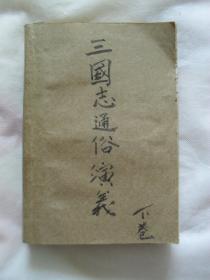 三國志通俗演義
下卷